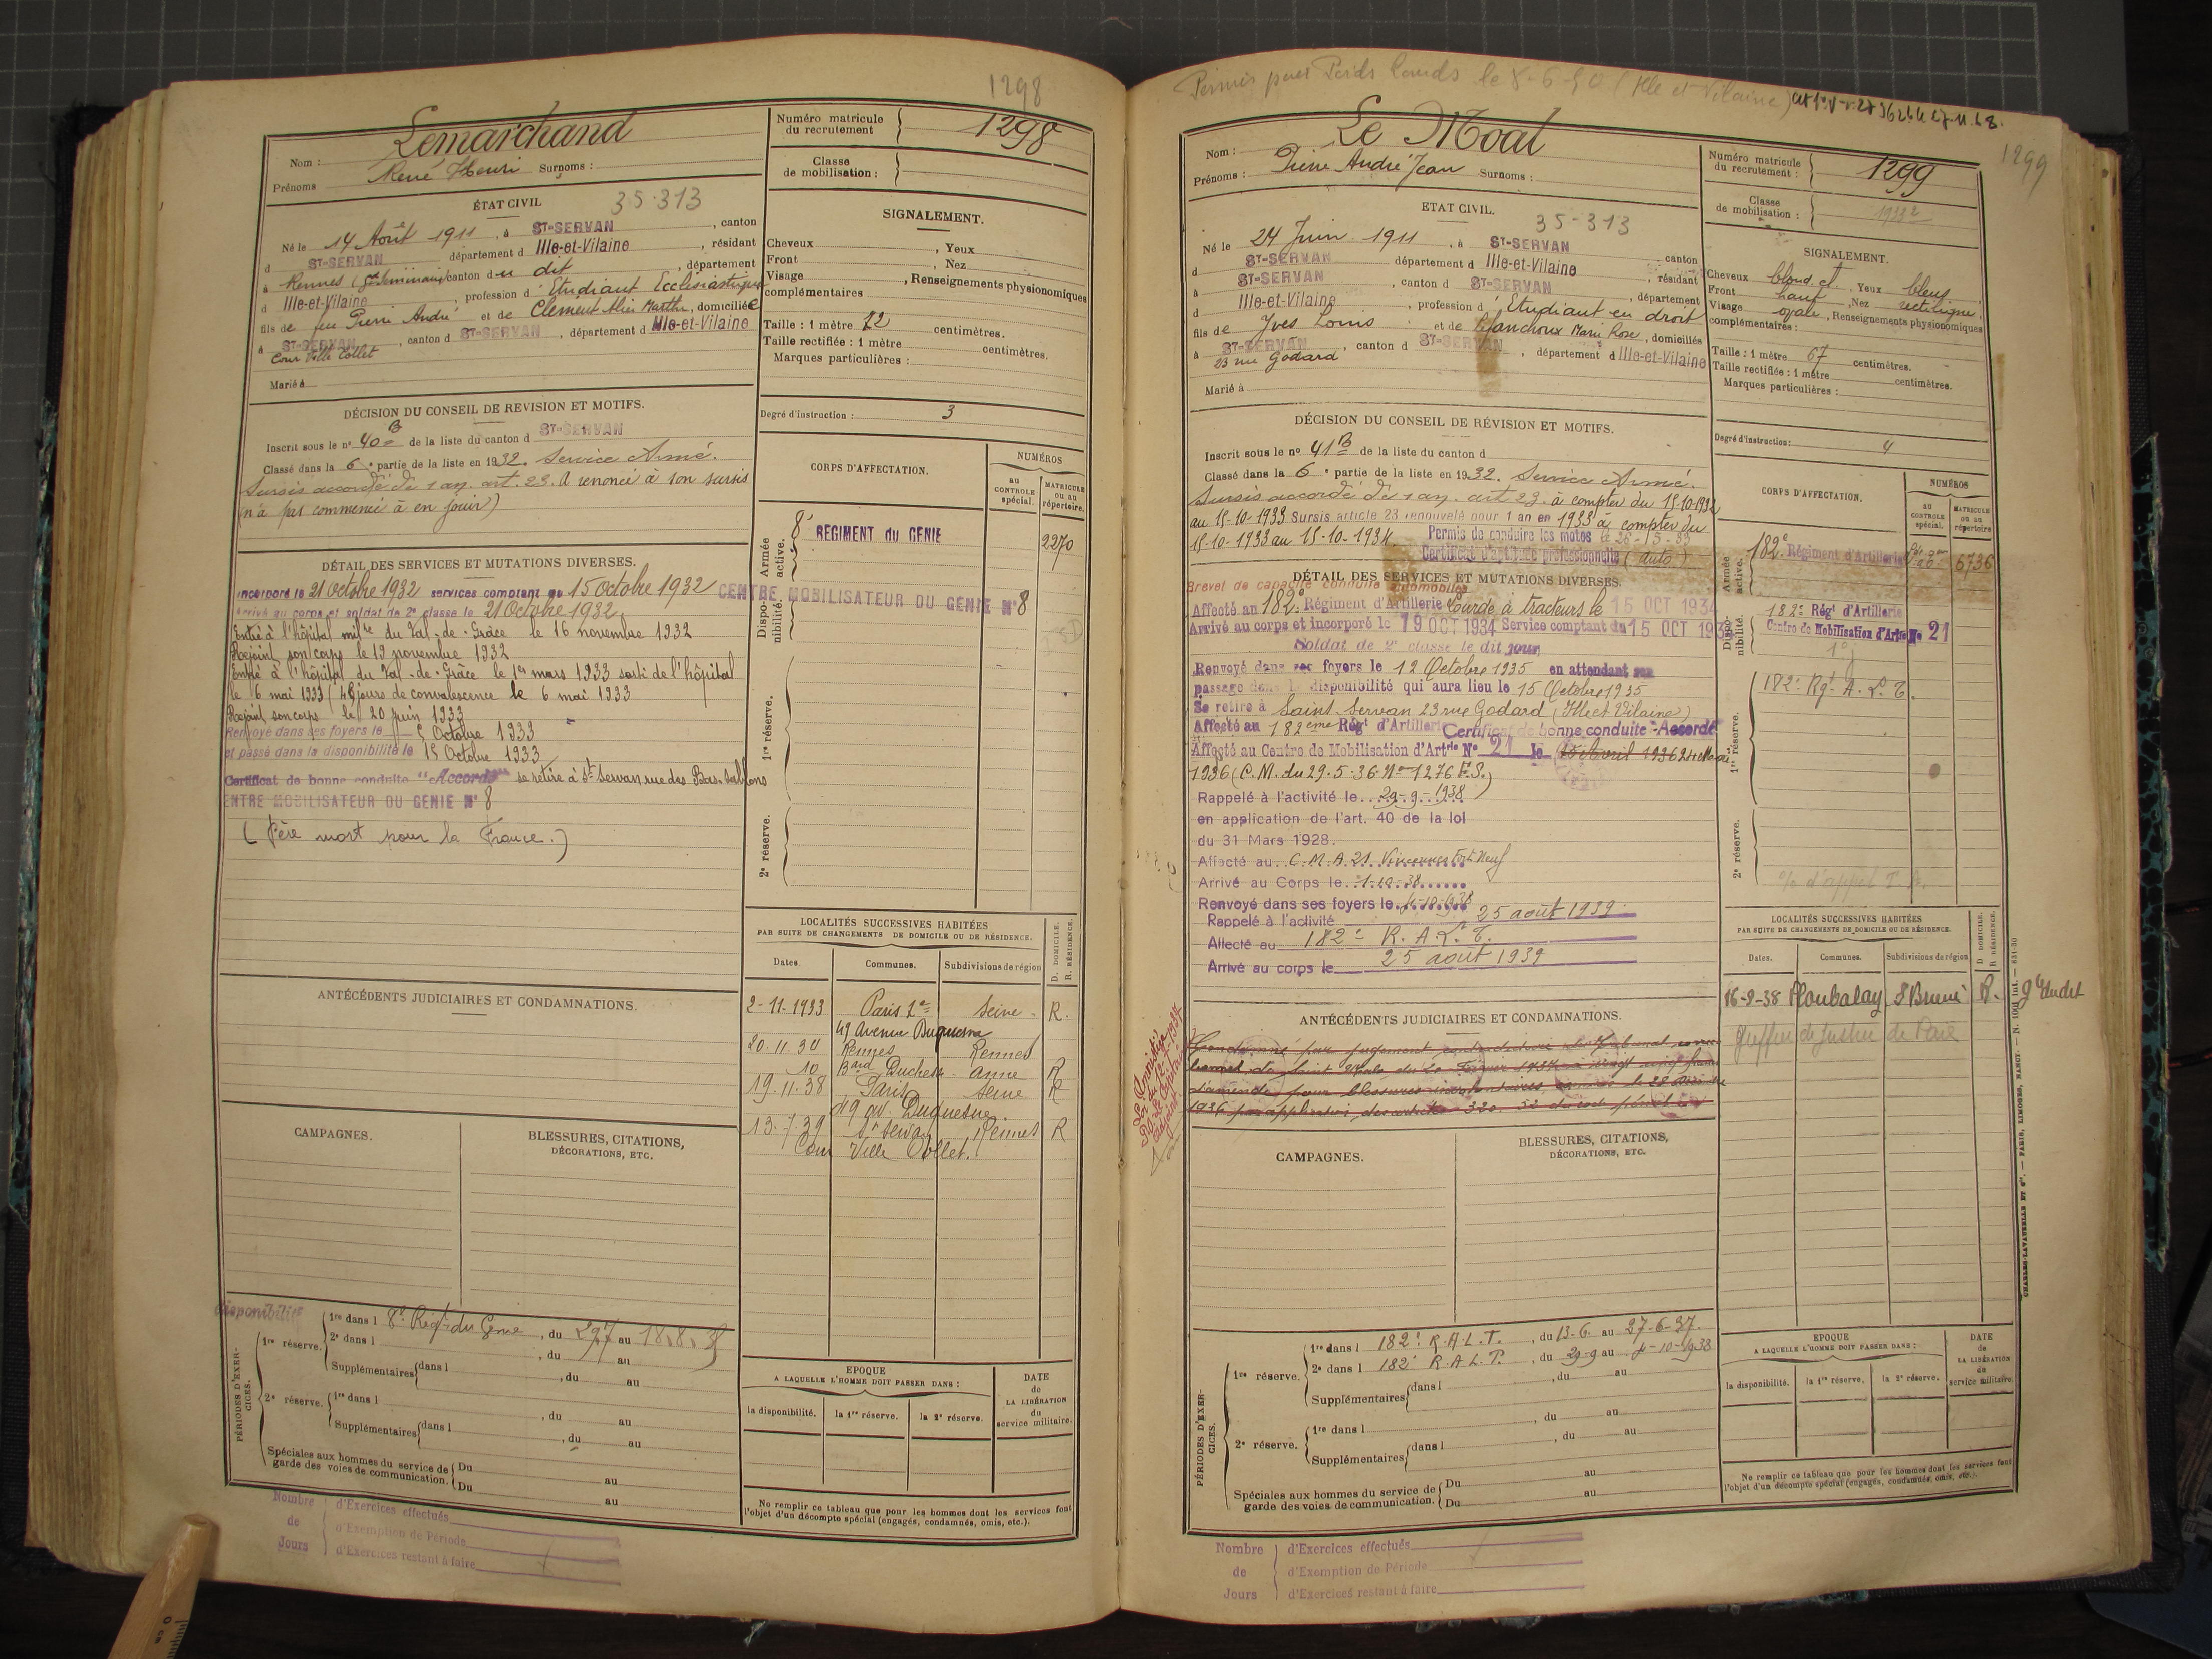 1298
Nom : Lemarchand
Prénoms René Henri Surnoms :
Numéro matricule du recrutement 1298
Classe de mobilisation :
ÉTAT CIVIL
35-313
Né le 14 Août 1911, à ST-SERVAN, canton
d ST-SERVAN département d Ille-et-Vilaine, résidant
à Rennes (gd Séminaire) canton d u dit, département
d Ille-et-Vilaine, profession d' Etudiant Ecclésiastique
fils de feu Pierre André et de Clément Marthe, domiciliée
à ST-SERVAN, canton d ST-SERVAN, département d Ille-et-Vilaine
Cour Ville Collet
Marié à
SIGNALEMENT.
Cheveux , Yeux
Front , Nez
Visage , Renseignements physionomiques
complémentaires
Taille : 1 mètre 72 centimètres.
Taille rectifiée : 1 mètre centimètres.
Marques particulières :
Degré d'instruction : 3
DÉCISION DU CONSEIL DE REVISION ET MOTIFS.
Inscrit sous le nº 40 B de la liste du canton d ST-SERVAN
Classé dans la 6e partie de la liste en 1932. Service Armé.
Sursis accordé de 1 an. art. 23. A renoncé à son sursis
(n'a pas commencé à en jouir)
CORPS D'AFFECTATION.
NUMÉROS
au CONTROLE spécial.
MATRICULE ou au répertoire.
Armée active.
8e REGIMENT du GENIE 2270
Disponibilité.
CENTRE MOBILISATEUR DU GENIE Nº 8
1re réserve.
2e réserve.
DÉTAIL DES SERVICES ET MUTATIONS DIVERSES.
Incorporé le 21 Octobre 1932 services comptant du 15 Octobre 1932
Arrivé au corps et soldat de 2e classe le 21 Octobre 1932
Entré à l'hôpital mil re du Val-de-Grâce le 16 novembre 1932
Rejoint son corps le 19 novembre 1932
Entré à l'hôpital du Val-de-Grâce le 1er mars 1933 sorti de l'hôpital
le 6 mai 1933 jours de convalescence le 6 mai 1933
Rejoint son corps le 20 juin 1933
Renvoyé dans ses foyers le 5 Octobre 1933
et passé dans la disponibilité le 15 Octobre 1933
Certificat de bonne conduite "Accordé" se retire à St Servan rue des Bas-Sablons
CENTRE MOBILISATEUR DU GENIE Nº 8
(Père mort pour la France.)
LOCALITÉS SUCCESSIVES HABITÉES
PAR SUITE DE CHANGEMENTS DE DOMICILE OU DE RÉSIDENCE.
D. DOMICILE. R. RÉSIDENCE.
Dates Communes. Subdivisions de région
2-11-1933 Paris Seine R.
49 Avenue Duquesne
20.11.34 Rennes Rennes
10 Bard Duchesse Anne R
19.11.38 Paris Seine R
49 av. Duquesne
13.7.39 St Servan Rennes R
Cour Ville Collet.
ANTÉCÉDENTS JUDICIAIRES ET CONDAMNATIONS.
CAMPAGNES.
BLESSURES, CITATIONS, DÉCORATIONS, ETC.
disponibilité
PÉRIODES D'EXERCICES.
1re réserve.
1re dans l 8e Régt du Génie, du 29.7 au 18.8.35
2e dans l , du au
Supplémentaires dans l , du au
2e réserve.
1re dans l , du au
Supplémentaires dans l , du au
Spéciales aux hommes du service de garde des voies de communication.
Du au
Du au
EPOQUE
A LAQUELLE L'HOMME DOIT PASSER DANS :
la disponibilité. la 1re réserve. la 2e réserve.
DATE de LA LIBÉRATION du service militaire.
Ne remplir ce tableau que pour les hommes dont les services font
l'objet d'un décompte spécial (engagés, condamnés, omis, etc.).
Nombre de Jours
d'Exercices effectués
d'Exemption de Période
d'Exercices restant à faire
Permis pour Poids lourds le 8-6-40 (Ille et Vilaine)
1299
Nom : Le Moal
Prénoms : Pierre André Jean Surnoms :
Numéro matricule du recrutement : 1299
Classe de mobilisation :
ETAT CIVIL.
35-313
Né le 24 Juin 1911, à ST-SERVAN
d ST-SERVAN département d Ille-et-Vilaine canton
à ST-SERVAN, canton d ST-SERVAN, résidant
d Ille-et-Vilaine, profession d' Etudiant en droit département
fils de Yves Louis et de Manchoux Marie Rose, domiciliés
à ST-SERVAN, canton d ST-SERVAN, département d Ille-et-Vilaine
23 rue Godard
Marié à
SIGNALEMENT.
Cheveux blond ct, Yeux bleus
Front haut, Nez rectiligne
Visage ovale, Renseignements physionomiques
complémentaires :
Taille : 1 mètre 67 centimètres.
Taille rectifiée : 1 mètre centimètres.
Marques particulières :
Degré d'instruction : 4
DÉCISION DU CONSEIL DE RÉVISION ET MOTIFS.
Inscrit sous le nº 41 B de la liste du canton d
Classé dans la 6e partie de la liste en 1932. Service Armé.
Sursis accordé de 1 an. art 23. à compter du 15-10-1932
au 15-10-1933 Sursis article 23 renouvelé pour 1 an en 1933 à compter du
15-10-1933 au 15-10-1934 Permis de conduire les motos
Certificat d'aptitude professionnelle (auto)
CORPS D'AFFECTATION.
NUMÉROS
au CONTROLE spécial.
MATRICULE ou au répertoire
Armée active.
182e Régiment d'Artillerie 6736
Disponibilité.
182e Régt d'Artillerie
Centre de Mobilisation d'Artie Nº 21
1re réserve.
182e Rgt A. L. T.
2e réserve.
DÉTAIL DES SERVICES ET MUTATIONS DIVERSES.
Brevet de capacité conduite automobiles
Affecté au 182e Régiment d'Artillerie Lourde à tracteurs le 15 OCT 1934
Arrivé au corps et incorporé le 19 OCT 1934 Service comptant du 15 OCT 1934
Soldat de 2e classe le dit jour
Renvoyé dans ses foyers le 12 Octobre 1935 en attendant son
passage dans la disponibilité qui aura lieu le 15 Octobre 1935
Se retire à Saint-Servan 23 rue Godard (Ille et Vilaine)
Affecté au 182ème Régt d'Artillerie Certificat de bonne conduite "Accordé"
Affecté au Centre de Mobilisation d'Artrie Nº 21 le 15 Avril 1936
1936 (C.M. du 29.5.36 Nº 1276 E.S.)
Rappelé à l'activité le 29-9-1938
en application de l'art. 40 de la loi
du 31 Mars 1928.
Affecté au C.M.A. 21 Vincennes Fort Neuf
Arrivé au Corps le 1-10-38
Renvoyé dans ses foyers le
Rappelé à l'activité 25 août 1939
Affecté au 182e R. A. L. T.
Arrivé au corps le 25 août 1939
LOCALITÉS SUCCESSIVES HABITÉES
PAR SUITE DE CHANGEMENTS DE DOMICILE OU DE RÉSIDENCE.
D DOMICILE. R RÉSIDENCE.
Dates. Communes. Subdivisions de région
16-9-38 Ploubalay St Brieuc R.
Greffier de Justice de Paix
ANTÉCÉDENTS JUDICIAIRES ET CONDAMNATIONS.
Condamné par jugement contradictoire du Tribunal correc
tionnel de Saint Malo du 20 Février 1937 à vingt cinq francs
d'amende pour blessures involontaires commis le 28 Décembre
1936 par application des articles 320. 52 du code pénal
CAMPAGNES.
BLESSURES, CITATIONS, DÉCORATIONS, ETC.
PÉRIODES D'EXERCICES.
1re réserve.
1re dans l 182e R.A.L.T., du 13-6. au 27-6-37.
2e dans l 182e R.A.L.T., du 29-9 au 4-10-1938
Supplémentaires dans l , du au
2e réserve.
1re dans l , du au
Supplémentaires dans l , du au
Spéciales aux hommes du service de garde des voies de communication.
Du au
Du au
EPOQUE
A LAQUELLE L'HOMME DOIT PASSER DANS :
la disponibilité. la 1re réserve. la 2e réserve.
DATE de LA LIBÉRATION du service militaire.
Ne remplir ce tableau que pour les hommes dont les services font
l'objet d'un décompte spécial (engagés, condamnés, omis, etc.).
Nombre de Jours
d'Exercices effectués
d'Exemption de Période
d'Exercices restant à faire
CHARLES-LAVAUZELLE ET Cie. — PARIS, LIMOGES, NANCY.